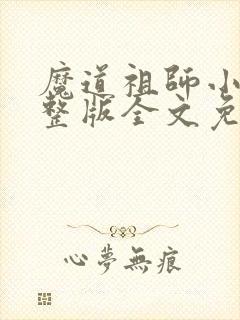 魔道祖師小
整版全文免
心夢無痕